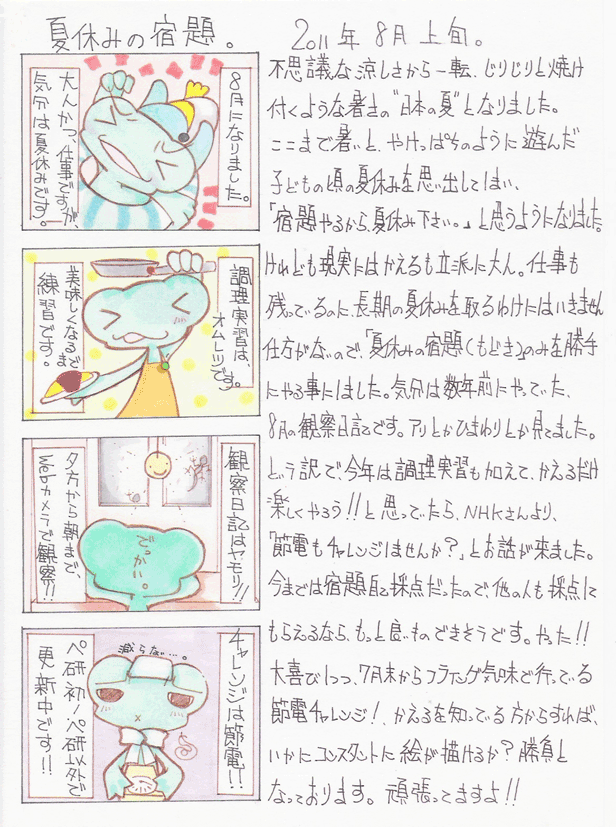 夏休みの宿題。
2011年8月上旬。
8月になりました。
大人かつ、仕事ですが、
気分は夏休みです。
調理実習は、
オムレツです。
美味しくなるまで
練習です。
観察日記はヤモリ!!
でっかい。
夕方から朝まで、
Webカメラで観察!!
チャレンジは節電!!
減らない…。
ペ研初!ペ研以外で
更新中です!!
不思議な涼しさから一転、じりじりと焼け
付くような暑さの"日本の夏"となりました。
ここまで暑いと、やけっぱちのように遊んだ
子どもの頃の夏休みを思い出してしまい、
「宿題やるから、夏休み下さい。」と思うようになりました。
けれども現実にはかえるも立派に大人。仕事も
残っているのに、長期の夏休みを取るわけにはいきません
仕方がないので、「夏休みの宿題(もどき)」のみを勝手
にやる事にしました。気分は数年前にやっていた、
8月の観察日記です。アリとかひまわりとか見てました。
という訳で、今年は調理実習も加えて、かえるだけ
楽しくやろう!!と思っていたら、NHKさんより、
「節電もチャレンジしませんか?」とお話が来ました。
今までは宿題自己採点だったので、他の人も採点して
もらえるなら、もっと良いものできそうです。やった!!
大喜びしつつ、7月末からフライング気味で行っている
節電チャレンジ!、かえるを知っている方からすれば、
いかにコンスタントに絵が描けるか?勝負と
なっております。頑張ってますよ!!